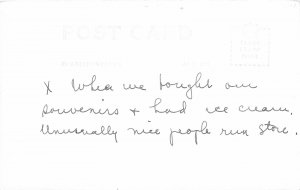 POST CARD
X Where we bought our
souvenirs + had ice cream.
Unusually nice people run store.